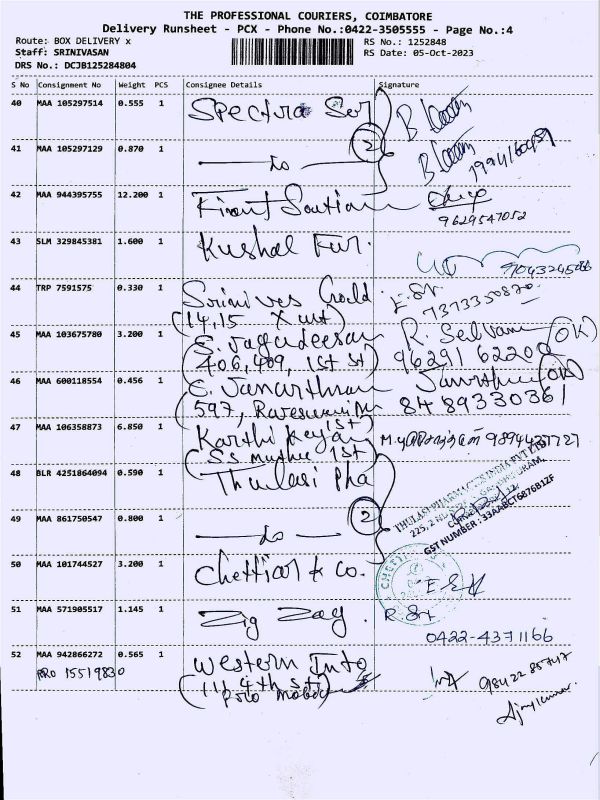 THE PROFESSIONAL COURIERS, COIMBATORE
Delivery Runsheet - PCX - Phone No.:0422-3505555 - Page No.:4
Route: BOX DELIVERY x RS No.: 1252848
Staff: SRINIVASAN RS Date: 05-Oct-2023
DRS No.: DCJB125284804
S No Consignment No Weight PCS Consignee Details Signature
40 MAA 105297514 0.555 1 Spectra Ser
41 MAA 105297129 0.870 1 do 2
42 MAA 944395755 12.200 1
9629547052
43 SLM 329845381 1.600 1 Kushal Fur.
44 TRP 7591575 0.330 1 Srinives Gold
7373350870
(14,15 X cut)
45 MAA 103675780 3.200 1 S. Jagadeesan R. Selvam (OK)
(406,409, 1st st) 96291 62200
46 MAA 600118554 0.456 1 E. Janarthnan (OK)
(597, 84 89330361
47 MAA 106358873 6.850 1 Karthikeyan 9894437727
(Ss muthu 1st)
48 BLR 4251864094 0.590 1 Thulasi Pha
THULASI PHARMACIES INDIA PVT LTD
GST NUMBER : 33AABCT6876B1ZF
49 MAA 861750547 0.800 1 do 2
50 MAA 101744527 3.200 1 Chettiar & Co.
51 MAA 571905517 1.145 1 Zig Zag.
0422-4371166
52 MAA 942866272 0.565 1 Western Into
PRO 15519830 (111 4th st)
98422 85747
Ajaykumar